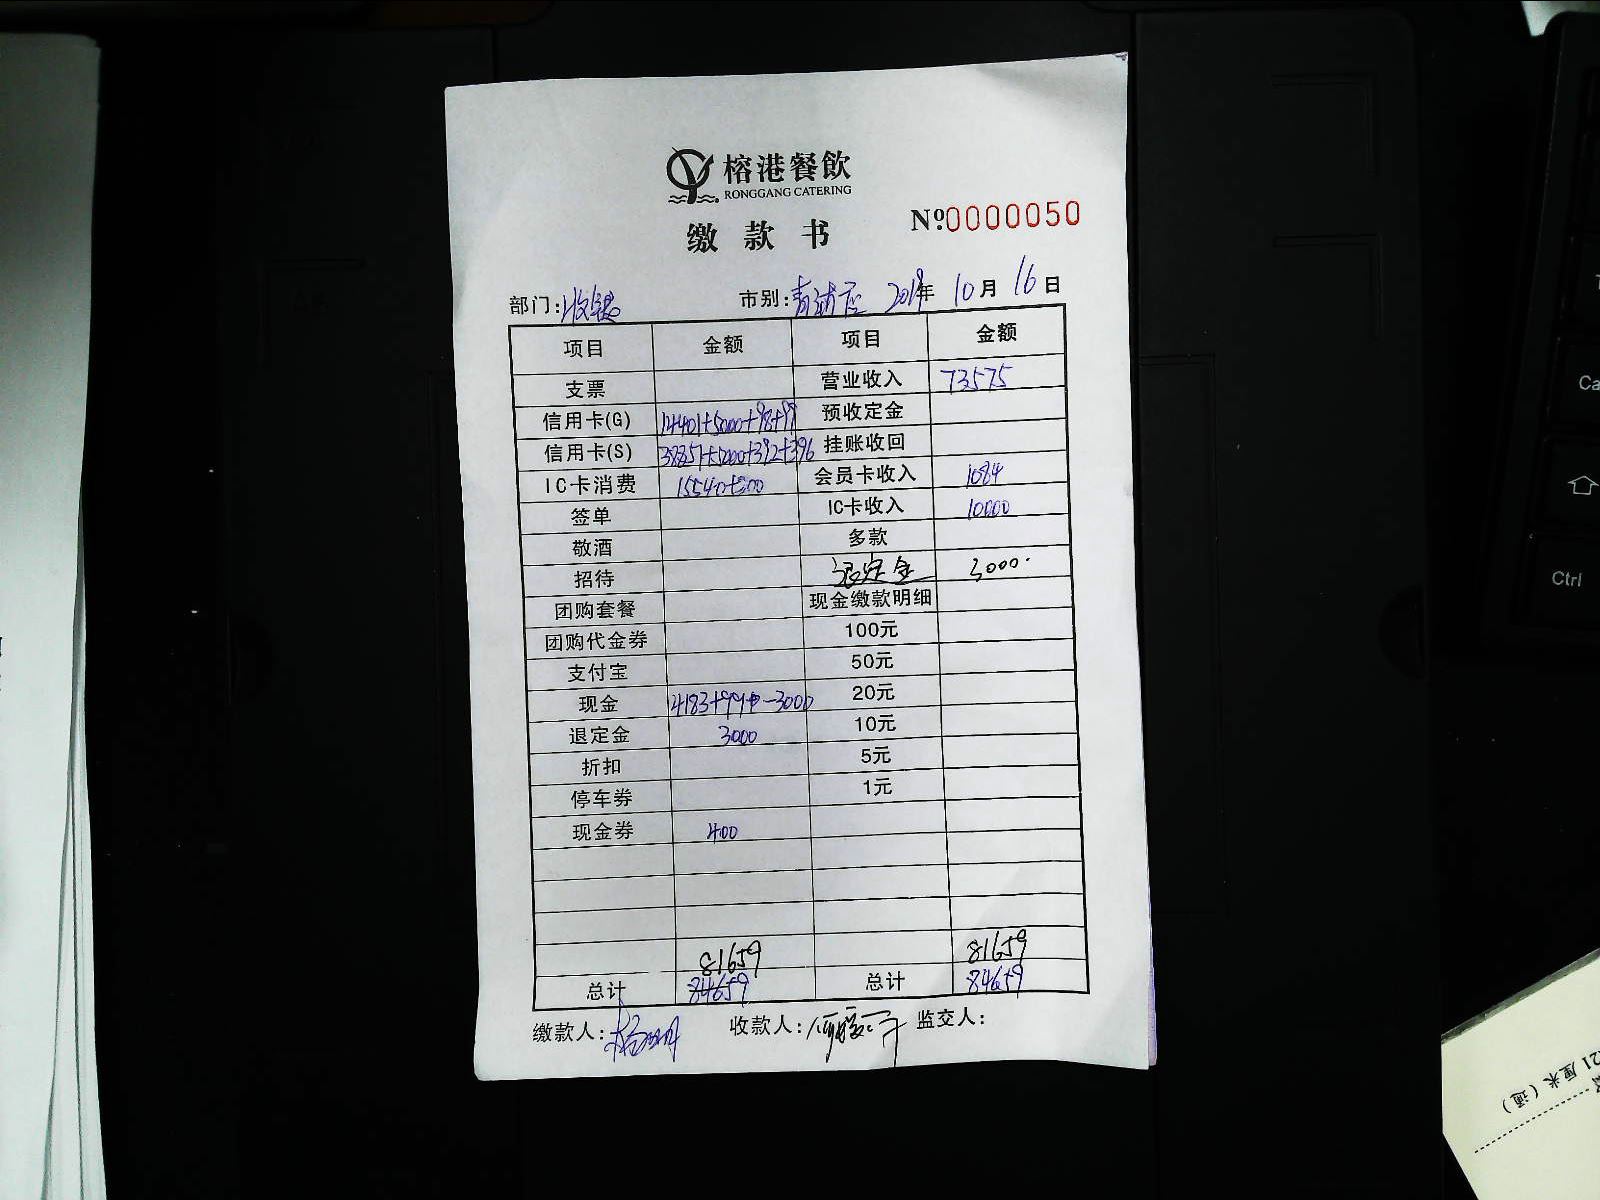 榕港餐飲
RONGGANG CATERING
缴款书
№0000050
部门:收银 市别:青浦店 2019年 10月 16日
项目 金额 项目 金额
支票 营业收入 73575
信用卡(G) 14401+5000+98+99 预收定金
信用卡(S) 38851+5000+392+396 挂账收回
IC卡消费 15540+300 会员卡收入 1084
签单 IC卡收入 10000
敬酒 多款
招待 退定金 3000
团购套餐 现金缴款明细
团购代金券 100元
支付宝 50元
现金 20元
退定金 3000 10元
折扣 5元
停车券 1元
现金券 400
81659 81659
总计 84659 总计 84659
缴款人: 收款人: 监交人:
Ctrl
21厘米(通)